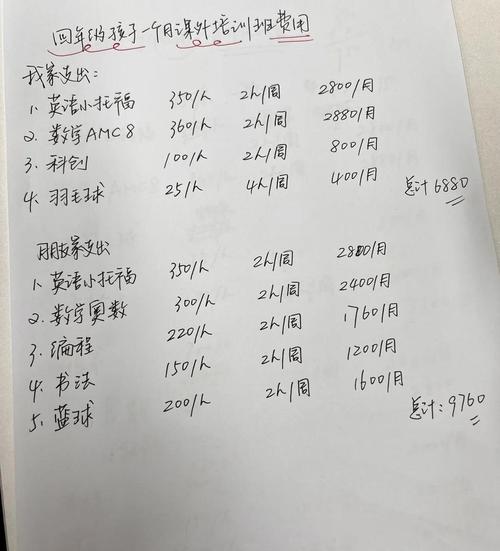 四年级孩子一个月课外培训班费用
我家支出:
1、英语小托福 350/h 2h/周 2800/月
2、数学AMC8 360/h 2h/周 2880/月
3、科创 100/h 2h/周 800/月
4、羽毛球 25/h 4h/周 400/月
总计6880
朋友家支出
1、英语小托福 350/h 2h/周 2800/月
2、数学奥数 300/h 2h/周 2400/月
3、编程 220/h 2h/周 1760/月
4、书法 150/h 2h/周 1200/月
5、蓝球 200/h 2h/周 1600/月
总计:9760